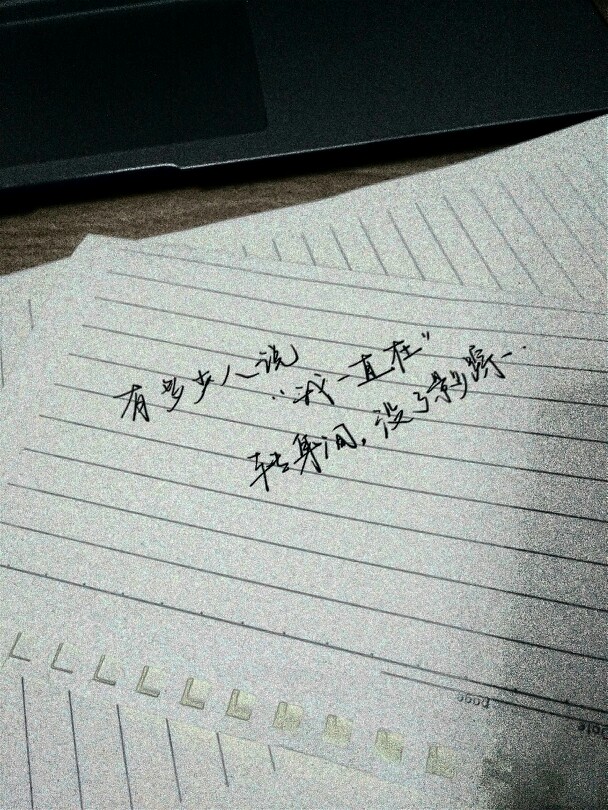 有多少人说
“我一直在”
转身间，没了影踪…
page